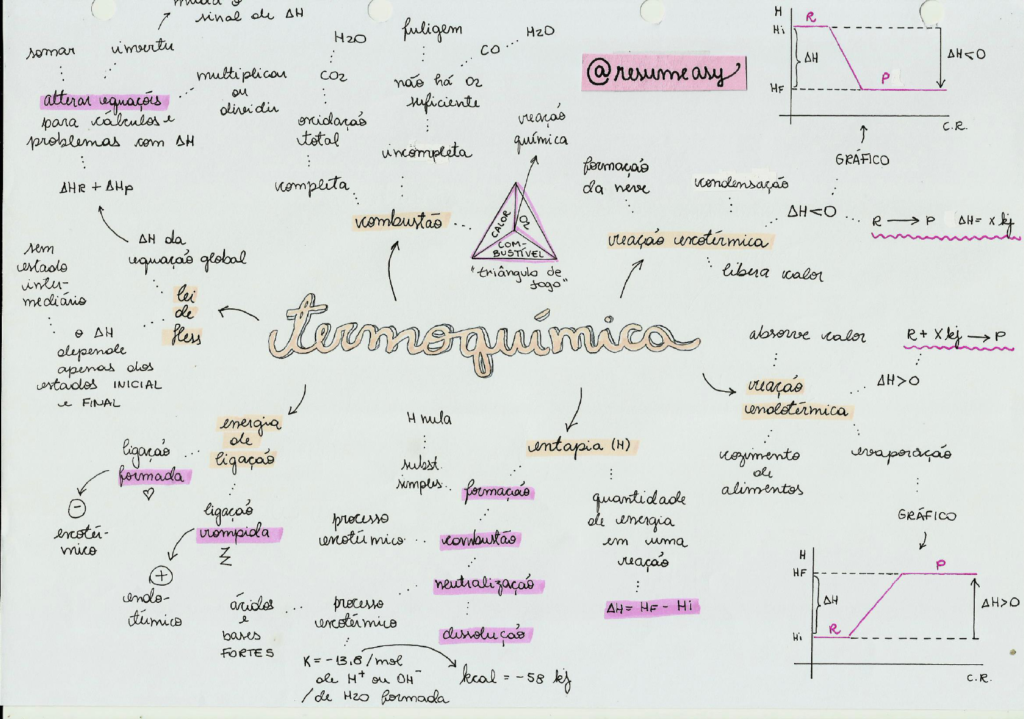 sinal de ΔH
somar
inverte
alterar equações
para cálculos e
problemas com ΔH
multiplicar
ou
dividir
ΔHR + ΔHp
ΔH da
equação global
sem
estado
inter-
mediário
lei
de
Hess
o ΔH
depende
apenas dos
estados INICIAL
e FINAL
H2O
CO2
oxidação
total
completa
fuligem
CO
H2O
não há O2
suficiente
incompleta
combustão
reação
química
CALOR
O2
COM-
BUSTÍVEL
"triângulo de
fogo"
@resumeasy
formação
da neve
condensação
reação exotérmica
libera calor
ΔH<0
GRÁFICO
R → P ΔH= xkj
H
Hi
R
ΔH
P
HF
ΔH<0
C.R.
termoquímica
absorve calor
R + Xkj → P
reação
endotérmica
ΔH>0
cozimento
de
alimentos
evaporação
GRÁFICO
H
HF
P
ΔH
R
Hi
ΔH>0
C.R.
energia
de
ligação
ligação
formada
♡
−
exotér-
mico
ligação
rompida
+
endo-
térmico
entapia (H)
H nula
subst.
simples
formação
processo
exotérmico
combustão
neutralização
processo
exotérmico
ácidos
e
bases
FORTES
dissolução
K = -13,8/mol
de H+ ou OH-
/de H2O formada
kcal = -58 kj
quantidade
de energia
em uma
reação
ΔH = HF - Hi